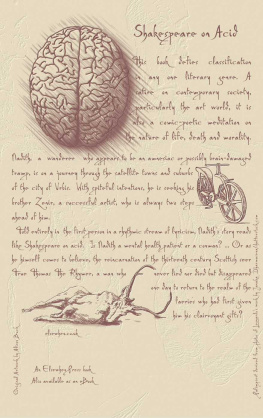 Shakespeare on Acid
This book defies classification
in any one literary genre. A
satire on contemporary society,
particularly the art world, it is
also a comic-poetic meditation on
the nature of life, death and morality.
a wanderer who appears to be an amnesiac or possibly brain-damaged
tramp, is on a journey through the satellite towns and suburbs
of the city of With spiteful intentions, he is seeking his
brother a successful artist, who is always two steps
ahead of him.
Told entirely in the first person in a rhythmic stream of lyricism, story reads
like Shakespeare on acid. Is a mental health patient or a conman? ... Or as
he himself comes to believe, the reincarnation of the thirteenth century Scottish seer
True Thomas the Rhymer, a man who never lied nor died but disappeared
one day to return to the realm of the
faeries who had first given
him his clairvoyant gifts?
An book
Also available as an eBook
Original Artwork by